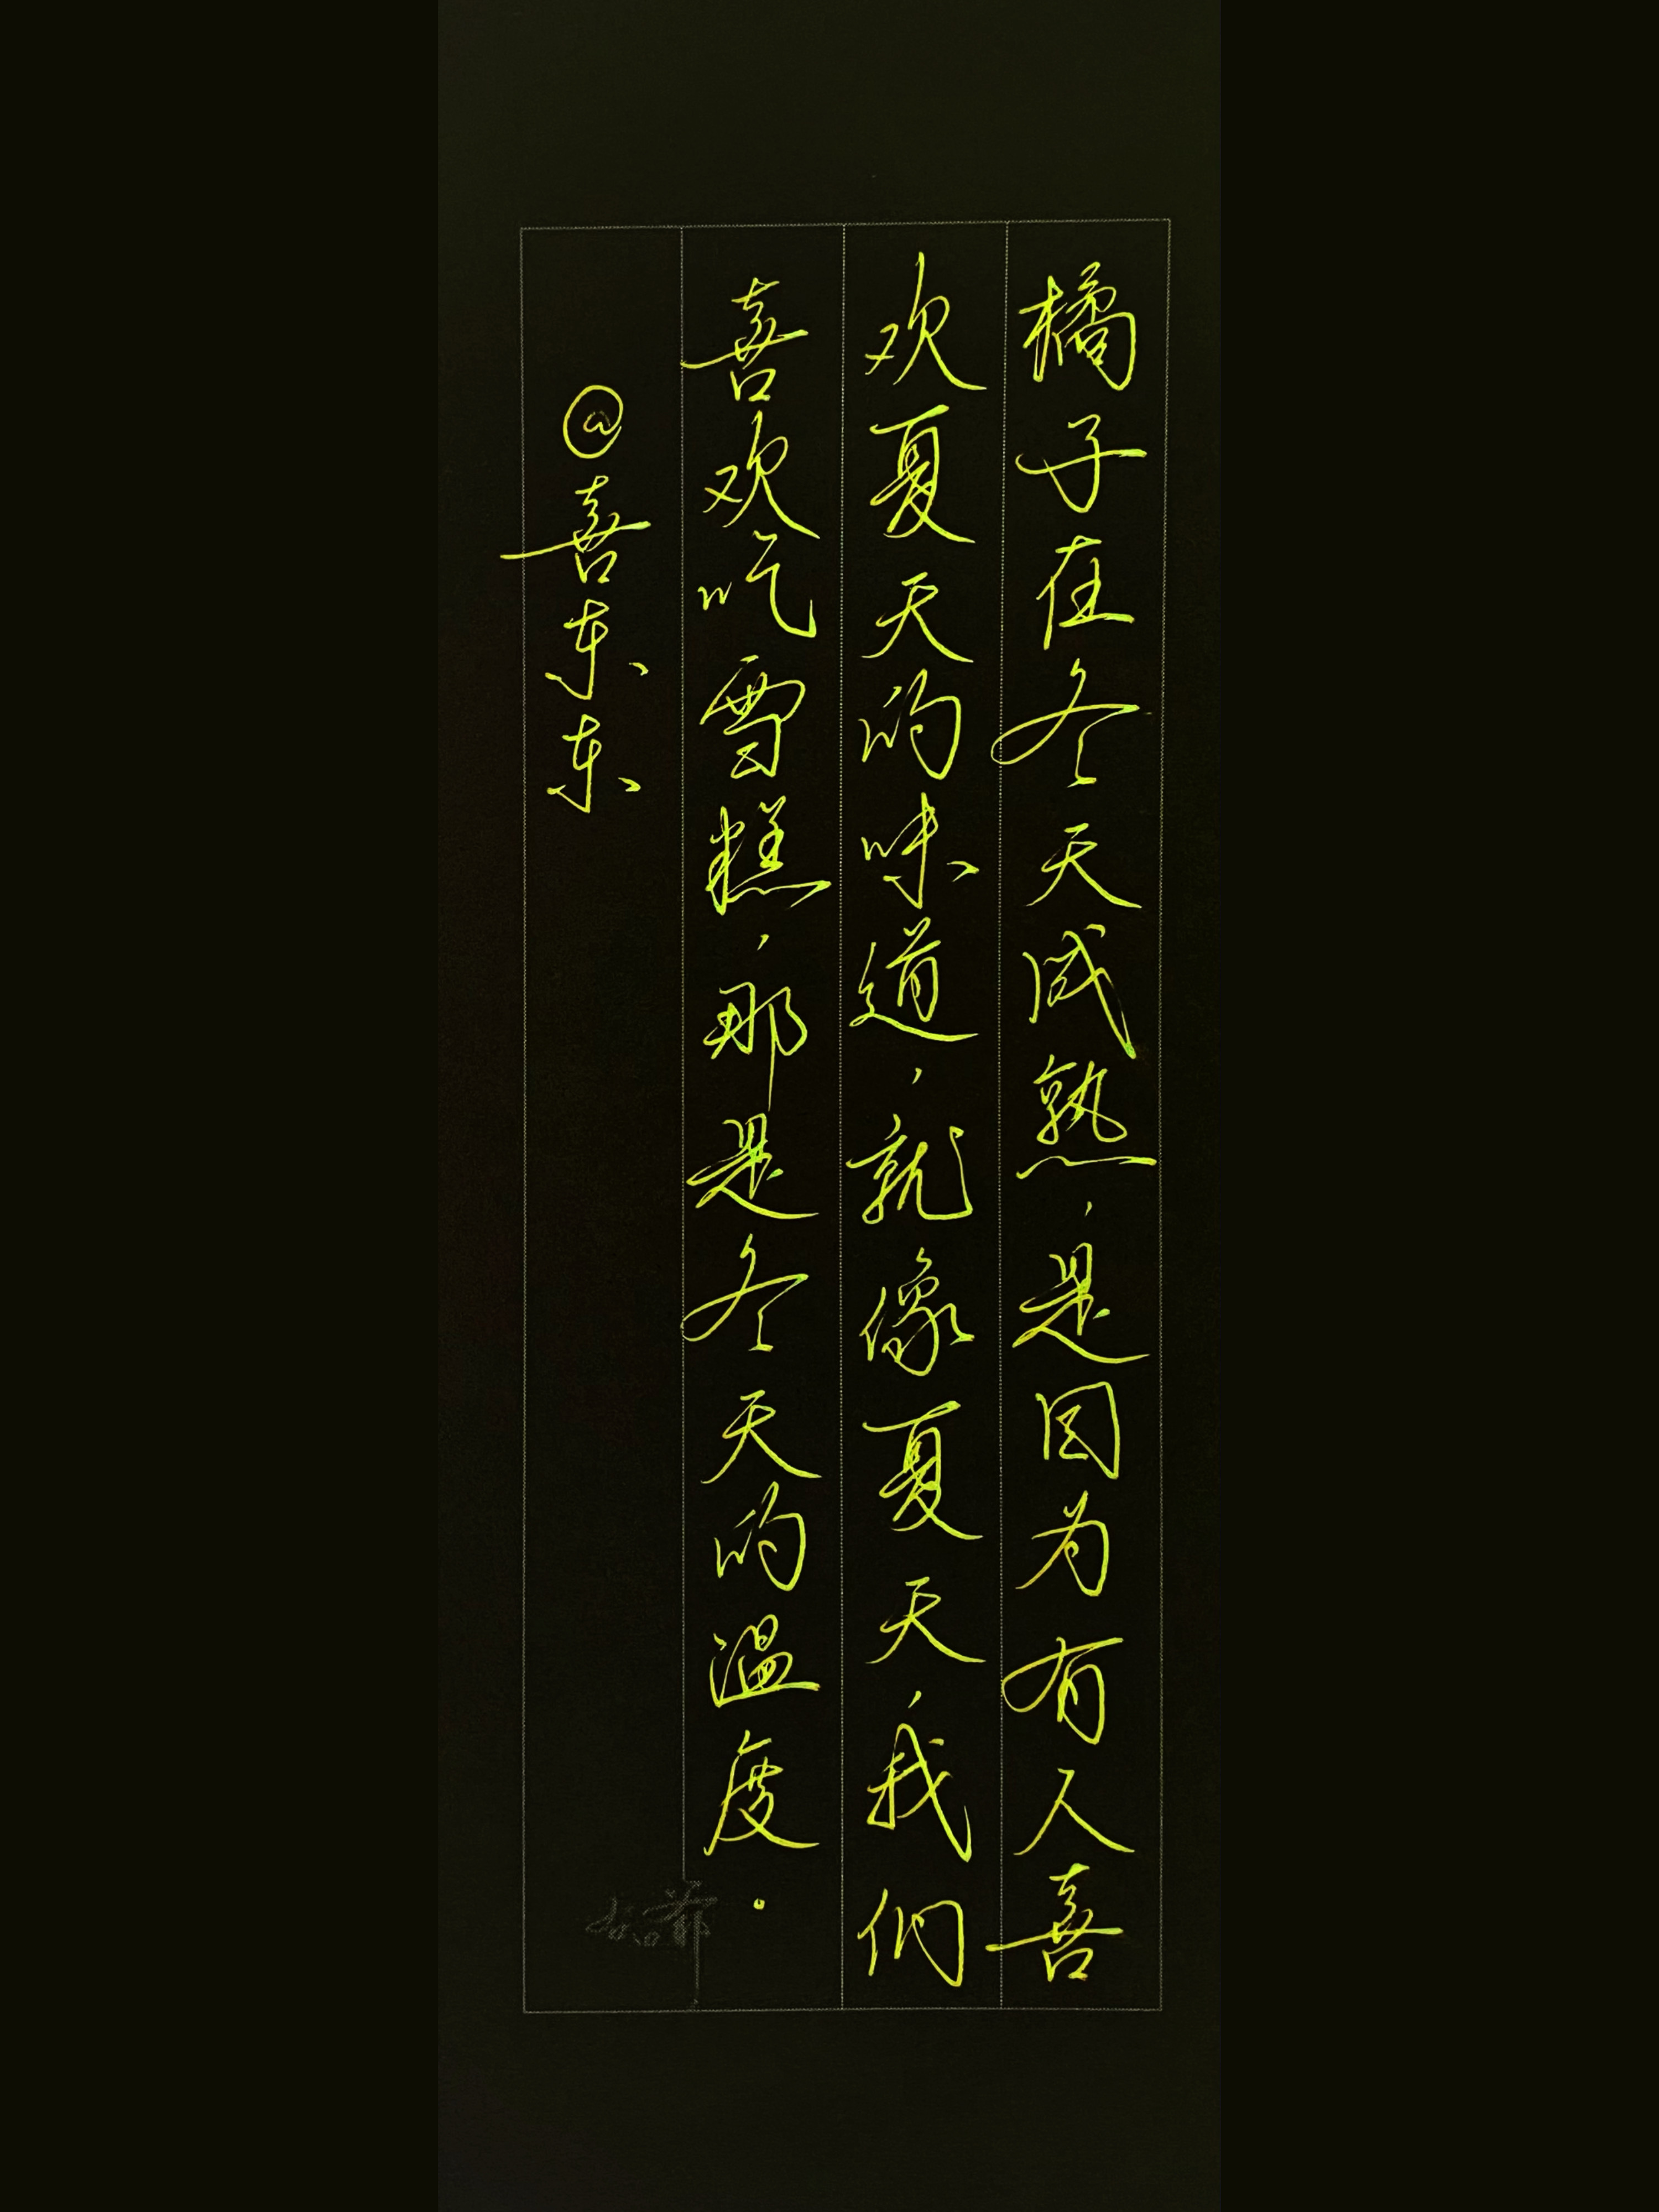 橘子在冬天成熟，是因为有人喜
欢夏天的味道，就像夏天，我们
喜欢吃雪糕，那是冬天的温度。
@喜东东